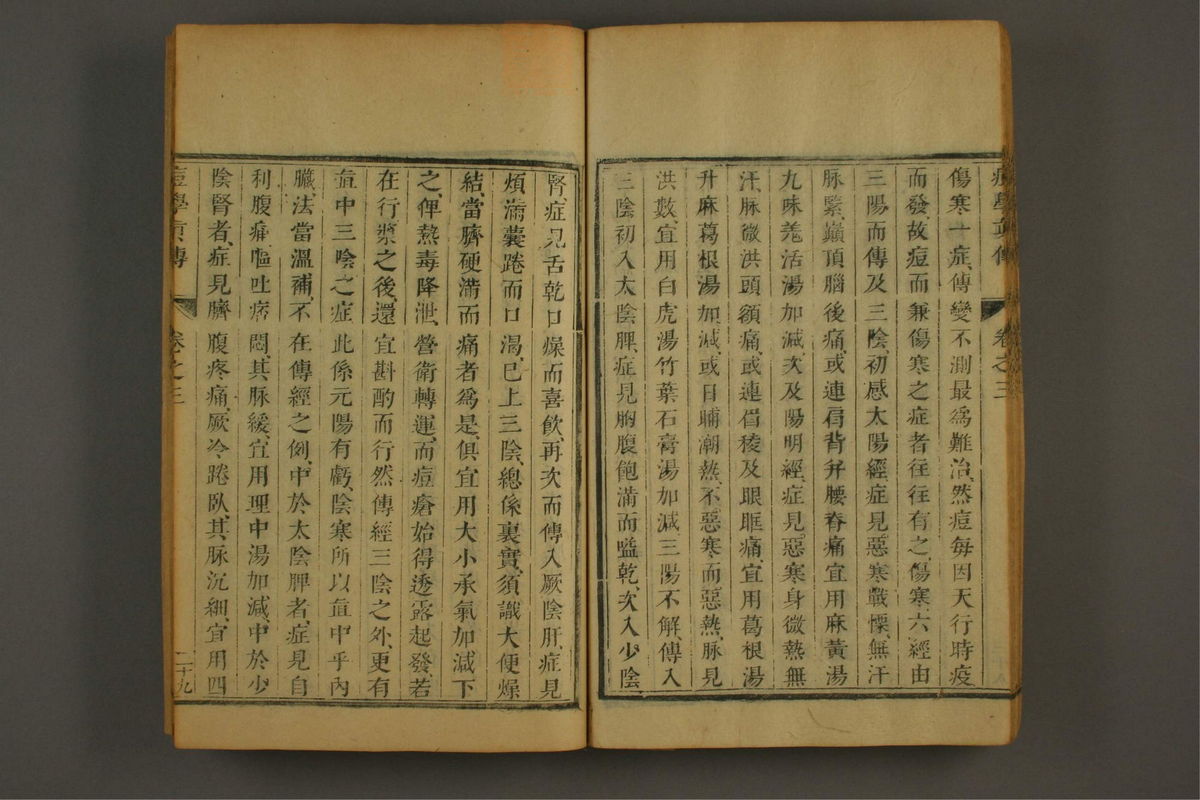 痘學真傳
卷之三
傷寒一症、傳變不測、最爲難治、然痘每因天行時疫
而發、故痘而兼傷寒之症者、往往有之、傷寒六經、由
三陽而傳及三陰、初感太陽經、症見惡寒戰慄、無汗
脉緊、巔頂腦後痛、或連肩背并腰脊痛、宜用麻黃湯
九味羗活湯加減、次及陽明經、症見惡寒身微熱無
汗、脉微洪、頭額痛、或連眉稜及眼眶痛、宜用葛根湯
升麻葛根湯加減、或日晡潮熱、不惡寒而惡熱、脉見
洪數、宜用白虎湯竹葉石膏湯加減、三陽不解、傳入
三陰、初入太陰脾、症見胸腹飽滿而嗌乾、次入少陰
腎、症見舌乾口燥而喜飲、再次而傳入厥陰肝、症見
煩滿囊踡而口渴、已上三陰、總係裏實、須識大便燥
結、當臍硬滿而痛者爲是、俱宜用大小承氣加減下
之、俾熱毒降泄、營衛轉運、而痘瘡始得透露起發、若
在行漿之後、還宜斟酌而行、然傳經三陰之外、更有
直中三陰之症、此係元陽有虧、陰寒所以直中乎內
臟、法當溫補、不在傳經之例、中於太陰脾者、症見自
利腹痛、嘔吐痞悶、其脉緩、宜用理中湯加減、中於少
陰腎者、症見臍腹疼痛、厥冷踡臥、其脉沉細、宜用四
痘學真傳
卷之三
二十九